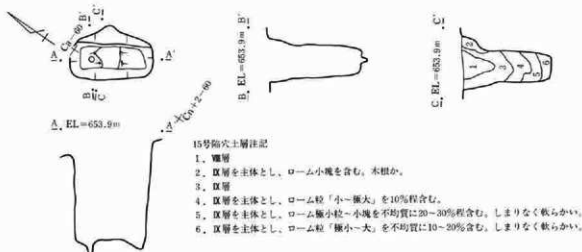 Ca-60
A
A'
B
B'
C
C'
A EL=653.9m A'
Cn+2-60
B EL=653.9m B'
C EL=653.9m C'
1
2
3
4
5
6
15号陥穴土層注記
1. Ⅷ層
2. Ⅸ層を主体とし、ローム小塊を含む。木根か。
3. Ⅸ層
4. Ⅸ層を主体とし、ローム粒「小~極大」を10%程含む。
5. Ⅸ層を主体とし、ローム極小粒~小塊を不均質に20~30%程含む。しまりなく軟らかい。
6. Ⅸ層を主体とし、ローム粒「極小~大」を不均質に10~20%含む。しまりなく軟らかい。